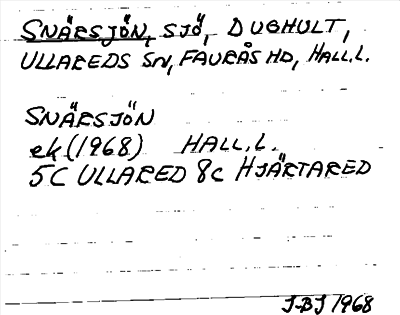 SNÄRSJÖN, SJÖ, DUGHULT,
ULLAREDS SN, FAURÅS HD, HALL.L.
SNÄRSJÖN
ek (1968) HALL.L.
5C ULLARED 8c HJÄRTARED
J-BJ 1968